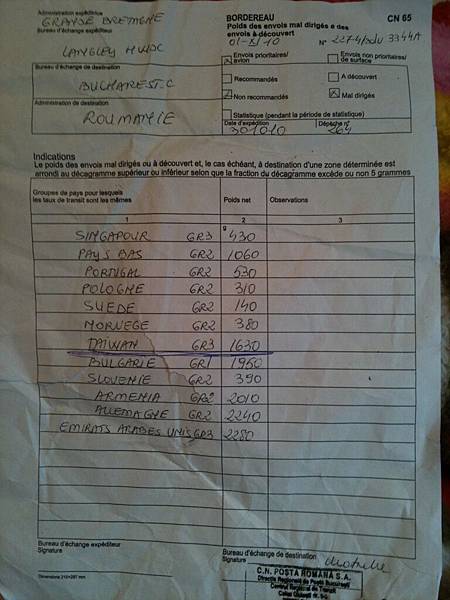 Administration expéditrice
GRANDE BRETAGNE
Bureau d'échange expéditeur
LANGLEY HWDC
Bureau d'échange de destination
BUCHAREST C
Administration de destination
ROUMANIE
BORDEREAU
Poids des envois mal dirigés e des
envois à découvert
CN 65
01-XI/10
N° 2274/bdu 3344A
Envois prioritaires/
avion
Envois non prioritaires/
de surface
Recommandés
A découvert
Non recommandés
Mal dirigés
Statistique (pendant la période de statistique)
Date d'expédition
301010
Dépêche n°
264
Indications
Le poids des envois mal dirigés ou à découvert et, le cas échéant, à destination d'une zone déterminée est
arrondi au décagramme supérieur ou inférieur selon que la fraction du décagramme excède ou non 5 grammes
Groupes de pays pour lesquels
les taux de transit sont les mêmes
Poids net
Observations
1 2 3
g
SINGAPOUR GR3 430
PAYS BAS GR2 1060
PORTUGAL GR2 530
POLOGNE GR2 310
SUEDE GR2 140
NORVEGE GR2 380
TAIWAN GR3 1630
BULGARIE GR1 1950
SLOVENIE GR2 390
ARMENIA GR2 2010
ALLEMAGNE GR2 2240
EMIRATS ARABES UNIS GR3 2280
Bureau d'échange expéditeur
Signature
Bureau d'échange de destination
Signature
Dimensions 210x297 mm
C.N. POSTA ROMANA S.A.
Directia Regionala de Posta Bucuresti
Centrul Regional de Tranzit